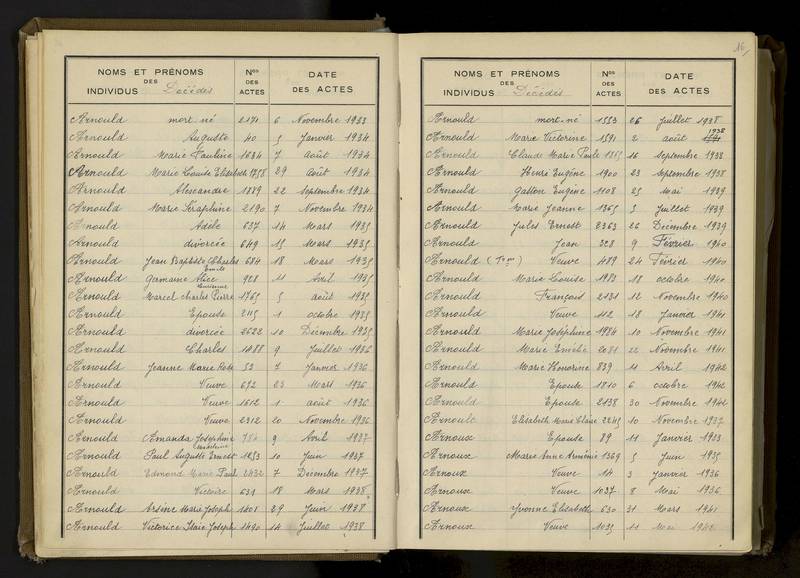 NOMS ET PRÉNOMS DES INDIVIDUS Décédés Nos DES ACTES DATE DES ACTES
Arnould mort né 2171 6 Novembre 1933
Arnould Auguste 40 5 Janvier 1934
Arnould Marie Pauline 1634 7 août 1934
Arnould Marie Louise Elisabeth 1758 29 août 1934
Arnould Alexandre 1889 22 Septembre 1934
Arnould Marie Séraphine 2190 7 Novembre 1934
Arnould Adèle 637 14 Mars 1935
Arnould divorcée 649 15 Mars 1935
Arnould Jean Baptiste Charles Emile 684 18 Mars 1935
Arnould Germaine Alice 928 11 Avril 1935
Arnould Marcel Charles Pierre 1765 5 août 1935
Arnould Epouse 2115 1 octobre 1935
Arnould divorcée 2622 10 Décembre 1935
Arnould Charles 1488 9 Juillet 1936
Arnould Jeanne Marie Rose 53 7 Janvier 1936
Arnould Veuve 672 23 Mars 1936
Arnould Veuve 1612 1 août 1936
Arnould Veuve 2312 20 Novembre 1936
Arnould Amanda Joséphine 784 9 Avril 1937
Arnould Paul Auguste Ernest 1253 10 Juin 1937
Arnould Edmond Marie Paul 2432 7 Décembre 1937
Arnould Victoire 631 18 Mars 1938
Arnould Arsène Marie Joseph 1401 29 Juin 1938
Arnould Victorice Marie Joseph 1490 14 Juillet 1938
16
NOMS ET PRÉNOMS DES INDIVIDUS Décédés Nos DES ACTES DATE DES ACTES
Arnould mort-né 1553 26 Juillet 1938
Arnould Marie Victorine 1591 2 août 1938
Arnould Claude Marie Paule 1865 16 Septembre 1938
Arnould Henri Eugène 1900 23 Septembre 1938
Arnould Gaston Eugène 1108 25 Mai 1939
Arnould Marie Jeanne 1365 5 Juillet 1939
Arnould Jules Ernest 2363 26 Décembre 1939
Arnould Jean 328 9 Février 1940
Arnould Veuve 489 24 Février 1940
Arnould Marie Louise 1983 18 octobre 1940
Arnould François 2131 12 Novembre 1940
Arnould Veuve 112 18 Janvier 1941
Arnould Marie Joséphine 1984 10 Novembre 1941
Arnould Marie 2081 22 Novembre 1941
Arnould Marie Honorine 839 11 Avril 1942
Arnould Epouse 1810 6 octobre 1942
Arnould Epouse 2138 30 Novembre 1942
Arnould Elisabeth Marie Claire 2245 10 Novembre 1937
Arnoux Epouse 89 11 Janvier 1933
Arnoux Marie Anne Arménie 1369 5 Juin 1935
Arnoux Veuve 14 3 Janvier 1936
Arnoux Veuve 1037 8 Mai 1936
Arnoux Yvonne Elisabeth 630 31 Mars 1941
Arnoux Veuve 1035 11 Mai 1942